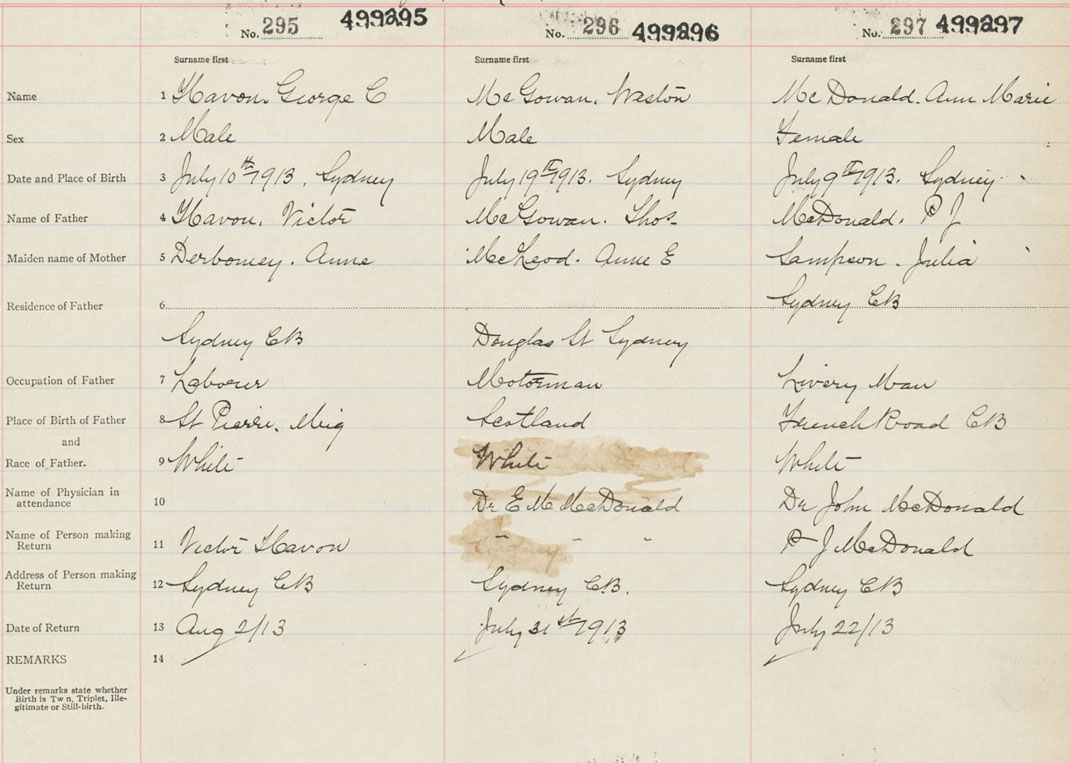 No. 295 499295 No. 296 499296 No. 297 499297
Surname first Surname first Surname first
Name 1 Havon. George C McGowan. Weston McDonald. Ann Marie
Sex 2 Male Male Female
Date and Place of Birth 3 July 10th 1913. Sydney July 19th 1913. Sydney July 9th 1913. Sydney
Name of Father 4 Havon. Victor McGowan. Thos. McDonald. P J
Maiden name of Mother 5 Anne McLeod. Anne E Sampson. Julia
Residence of Father 6 Sydney CB
Sydney CB Douglas St Sydney
Occupation of Father 7 Laborer Motorman Livery Man
Place of Birth of Father 8 St Pierre. Miq Scotland French Road CB
and
Race of Father. 9 White White White
Name of Physician in
attendance 10 Dr E M McDonald Dr John McDonald
Name of Person making
Return 11 Victor Havon " " " P J McDonald
Address of Person making
Return 12 Sydney CB Sydney C.B. Sydney CB
Date of Return 13 Aug 2/13 July 31st 1913 July 22/13
REMARKS 14
Under remarks state whether
Birth is Twn, Triplet, Ille-
gitimate or Still-birth.